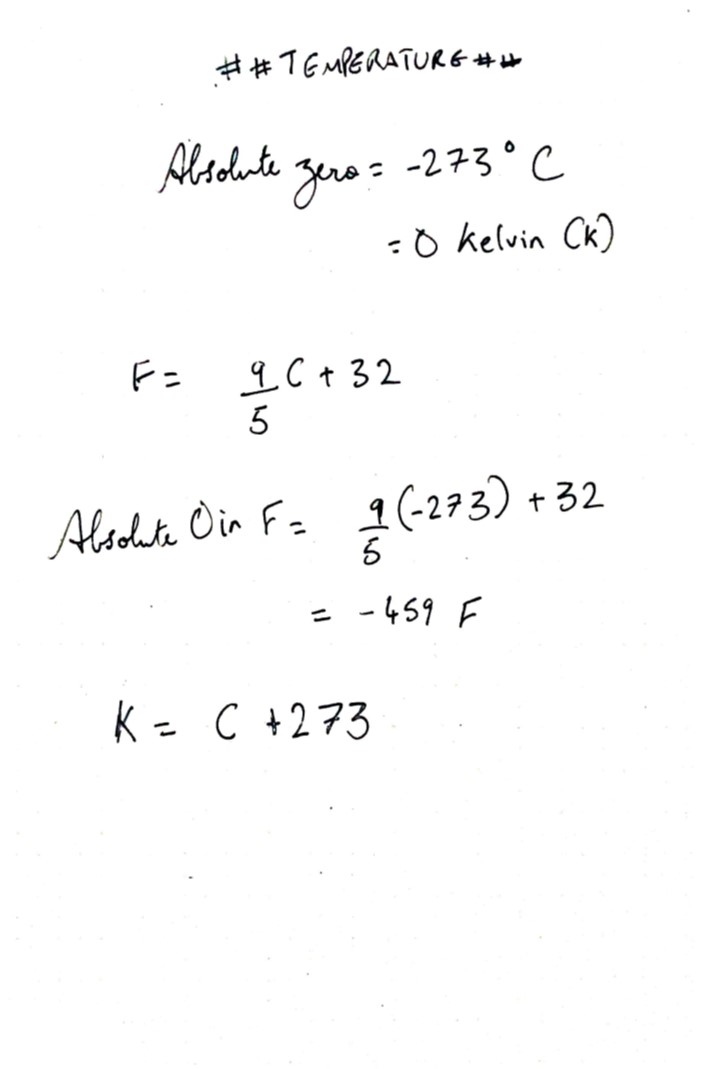 ## TEMPERATURE ##
Absolute zero = -273° C
= 0 kelvin (k)
F = 9/5 C + 32
Absolute 0 in F = 9/5 (-273) + 32
= -459 F
K = C + 273